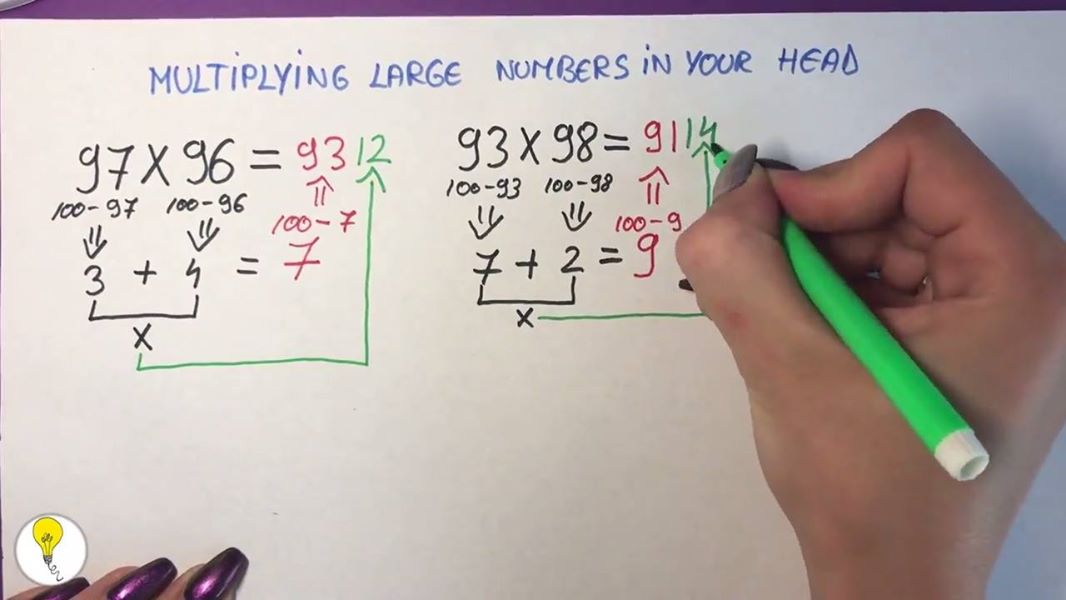 MULTIPLYING LARGE NUMBERS IN YOUR HEAD
97 X 96 = 9312
100-97 100-96
100-7
3 + 4 = 7
X
93 X 98 = 9114
100-93 100-98
100-9
7 + 2 = 9
X